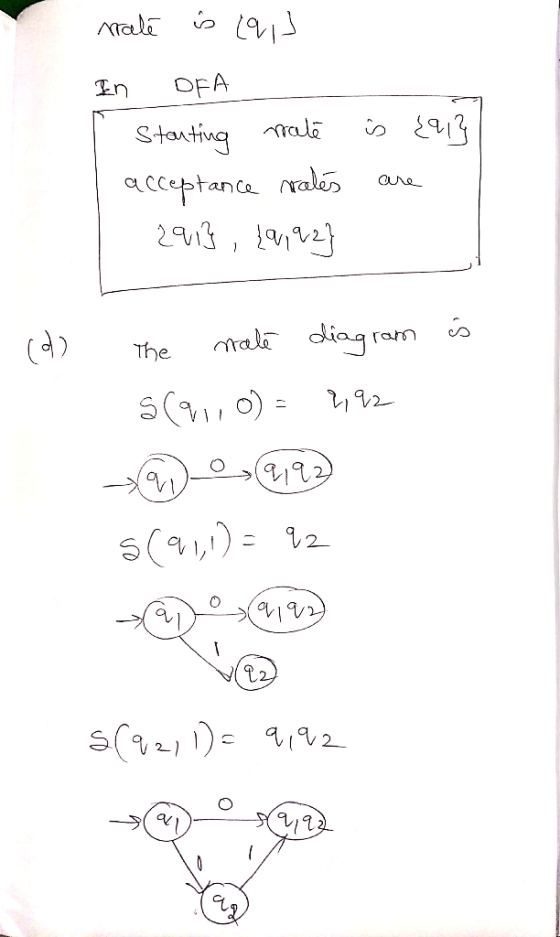 state is {q1}
In DFA
Starting state is {q1}
acceptance states are
{q1}, {q1q2}
(d) The state diagram is
δ(q1, 0) = q1q2
→ q1 0 → q1q2
δ(q1,1) = q2
→ q1 0 → q1q2
1
q2
δ(q2, 1) = q1q2
→ q1 0 → q1q2
1 1
q2